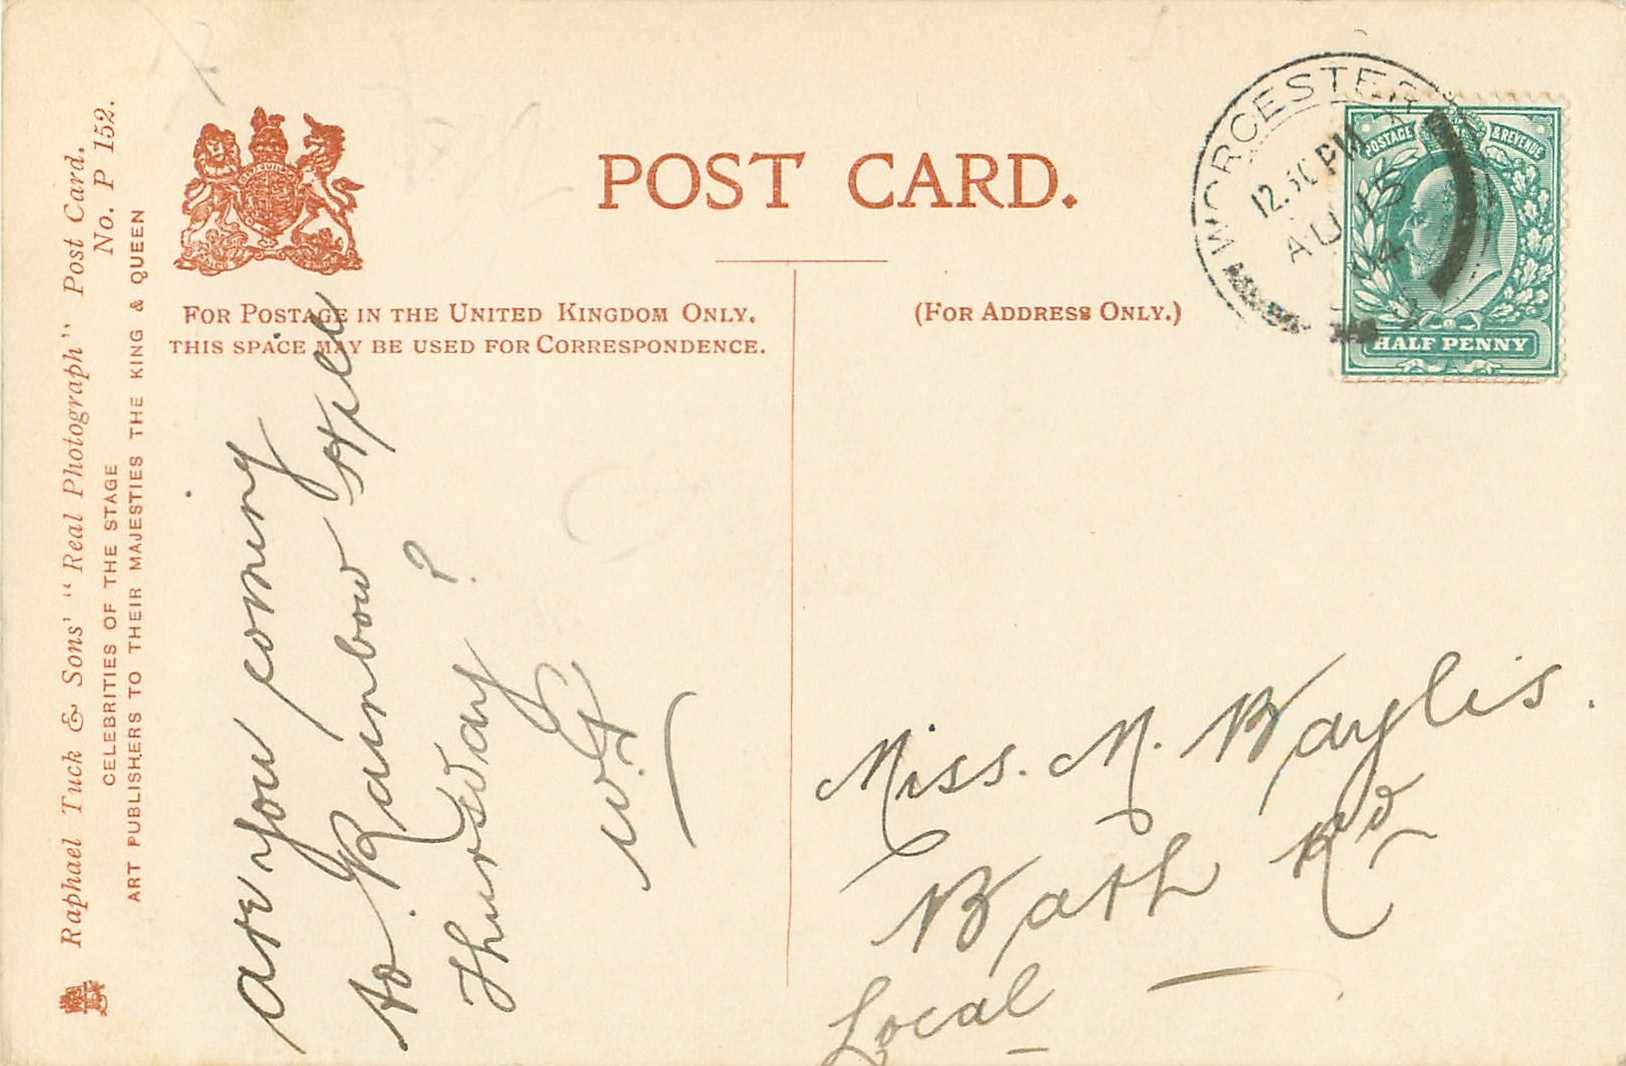 Raphael Tuck & Sons' "Real Photograph" Post Card.
No. P 152.
CELEBRITIES OF THE STAGE
ART PUBLISHERS TO THEIR MAJESTIES THE KING & QUEEN
POST CARD.
FOR POSTAGE IN THE UNITED KINGDOM ONLY.
THIS SPACE MAY BE USED FOR CORRESPONDENCE.
(FOR ADDRESS ONLY.)
WORCESTER
12.30 PM
AU 15
04
POSTAGE & REVENUE
HALF PENNY
are you coming
to Rainbow Hill
Thursday ?
Miss. M. Baylis.
Bath Rd
Local